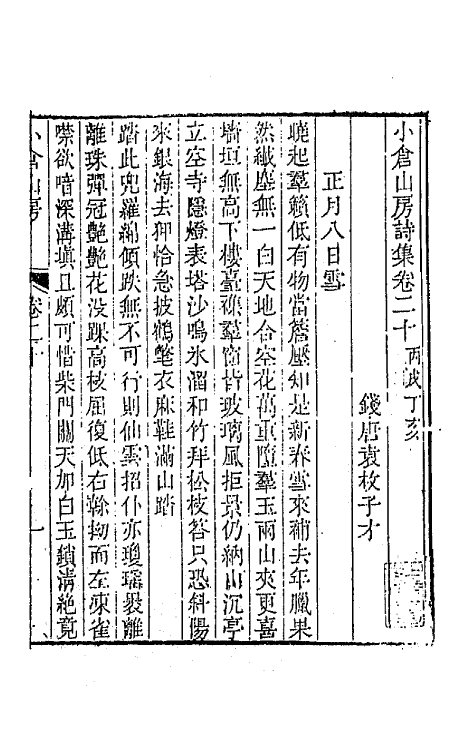 小倉山房詩集卷二十 丙戌丁亥
錢唐袁枚子才
正月八日雪
曉起羣籟低有物當簷壓知是新春雪來補去年臘果
然纖塵無一白天地合空花萬重墮羣玉兩山夾更喜
墻垣無高下樓臺襍羣窗皆玻璃風拒景仍納山沉亭
立空寺隱燈表塔沙鳴氷溜和竹拜松枝答只恐斜陽
來銀海去狎恰急披鶴氅衣麻鞋滿山踏
踏此兜羅綿傾跌無不可行則仙雲招仆亦瓊瑤裹離
離珠彈冠艷艷花没踝高枝屈復低右翰拗而左凍雀
噤欲喑深溝填且頗可惜柴門關天加白玉鎖溝絶竟
小倉山房 卷二十 一